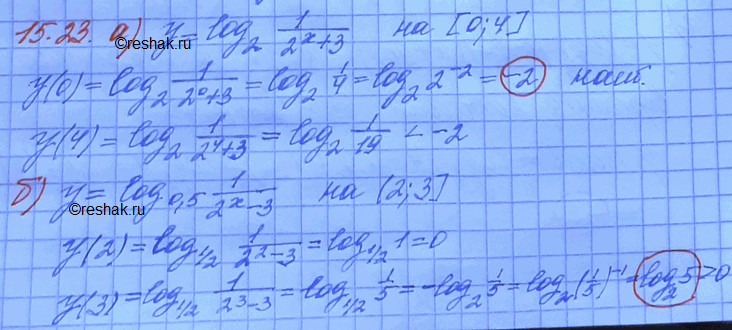 15.23. а) y = log₂ 1/(2ˣ+3) на [0;4]
©reshak.ru
y(0) = log₂ 1/(2⁰+3) = log₂ 1/4 = log₂ 2⁻² = -2 наиб.
y(4) = log₂ 1/(2⁴+3) = log₂ 1/19 < -2
б) y = log₀,₅ 1/(2ˣ-3) на (2;3]
©reshak.ru
y(2) = log₁/₂ 1/(2²-3) = log₁/₂ 1 = 0
y(3) = log₁/₂ 1/(2³-3) = log₁/₂ 1/5 = -log₂ 1/5 = log₂ (1/5)⁻¹ = log₂ 5 > 0